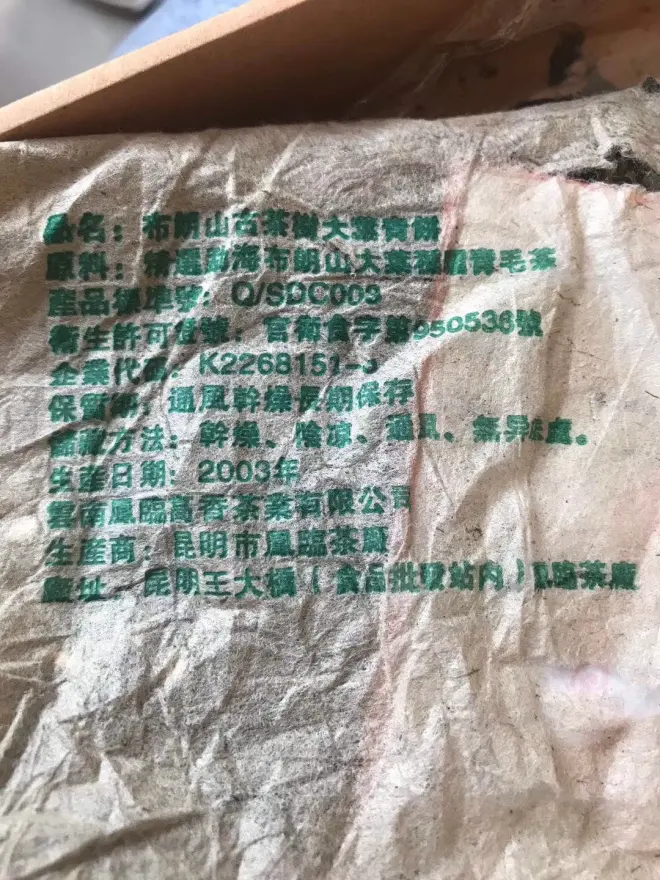 品名：布朗山古茶樹大葉青餅
原料：精選勐海布朗山大葉種曬青毛茶
産品標準號：Q/SDC003
衛生許可證號：官衛食字第050536號
企業代碼：K2268151-3
保質期：通風幹燥長期保存
儲藏方法：幹燥、陰凉、通風、無异味處。
生産日期：2003年
雲南鳳臨高香茶業有限公司
生産商：昆明市鳳臨茶廠
廠址 昆明王大橋（食品批發站内）鳳臨茶廠